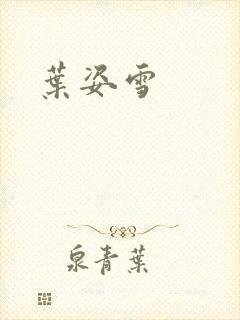 葉姿雪
泉青葉